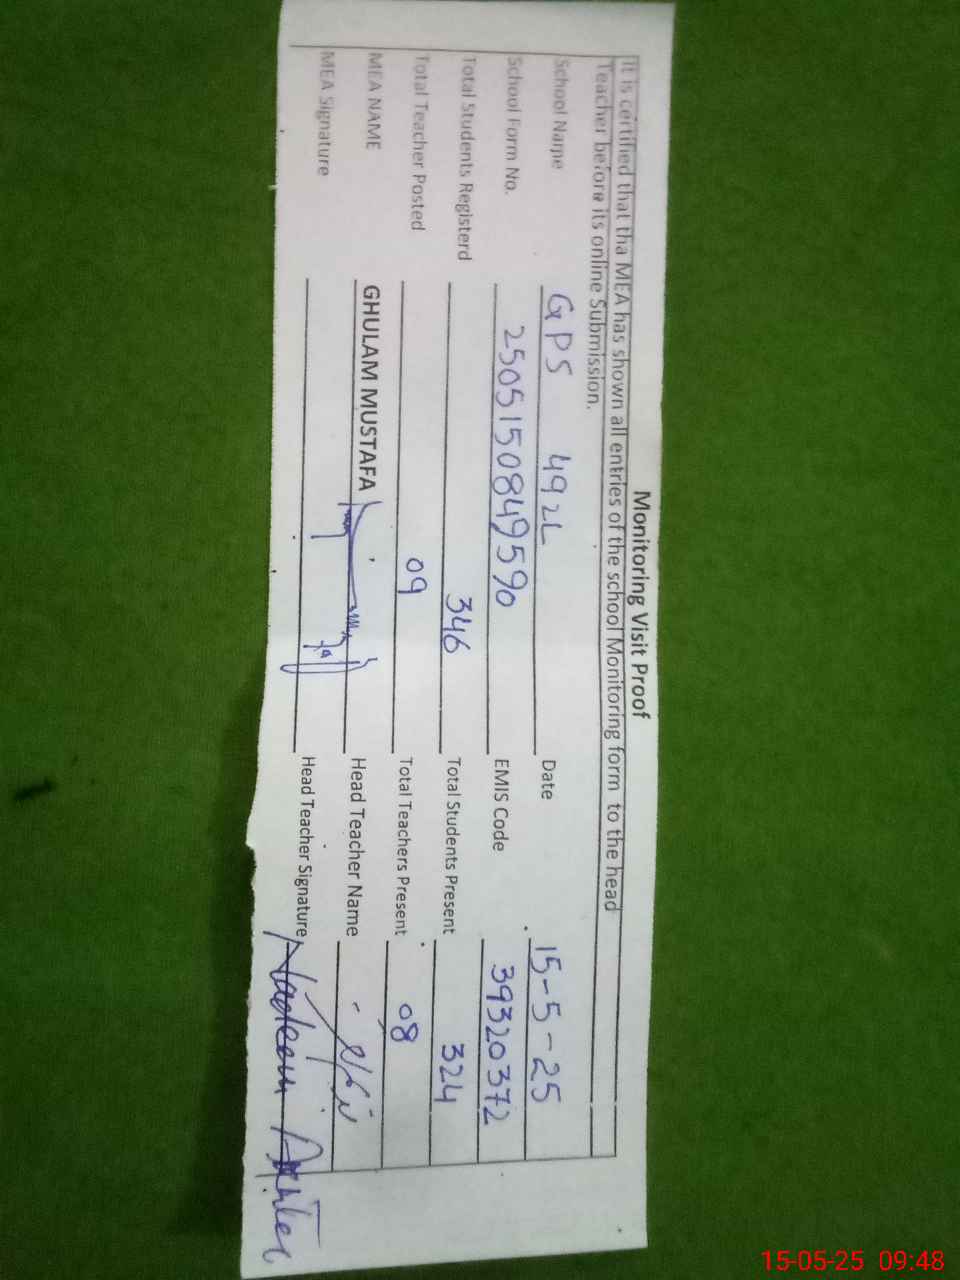 Monitoring Visit Proof
It is certified that tha MEA has shown all entries of the school Monitoring form to the head
Teacher before its online Submission.
School Name GPS 49 2L Date 15-5-25
School Form No. 2505150849590 EMIS Code 39320372
Total Students Registerd 346 Total Students Present 324
Total Teacher Posted 09 Total Teachers Present 08
MEA NAME GHULAM MUSTAFA Head Teacher Name
MEA Signature Head Teacher Signature Nadeem Akhter
15-05-25 09:48